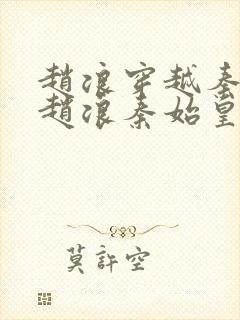 趙浪穿越秦
趙浪秦始皇
莫許空